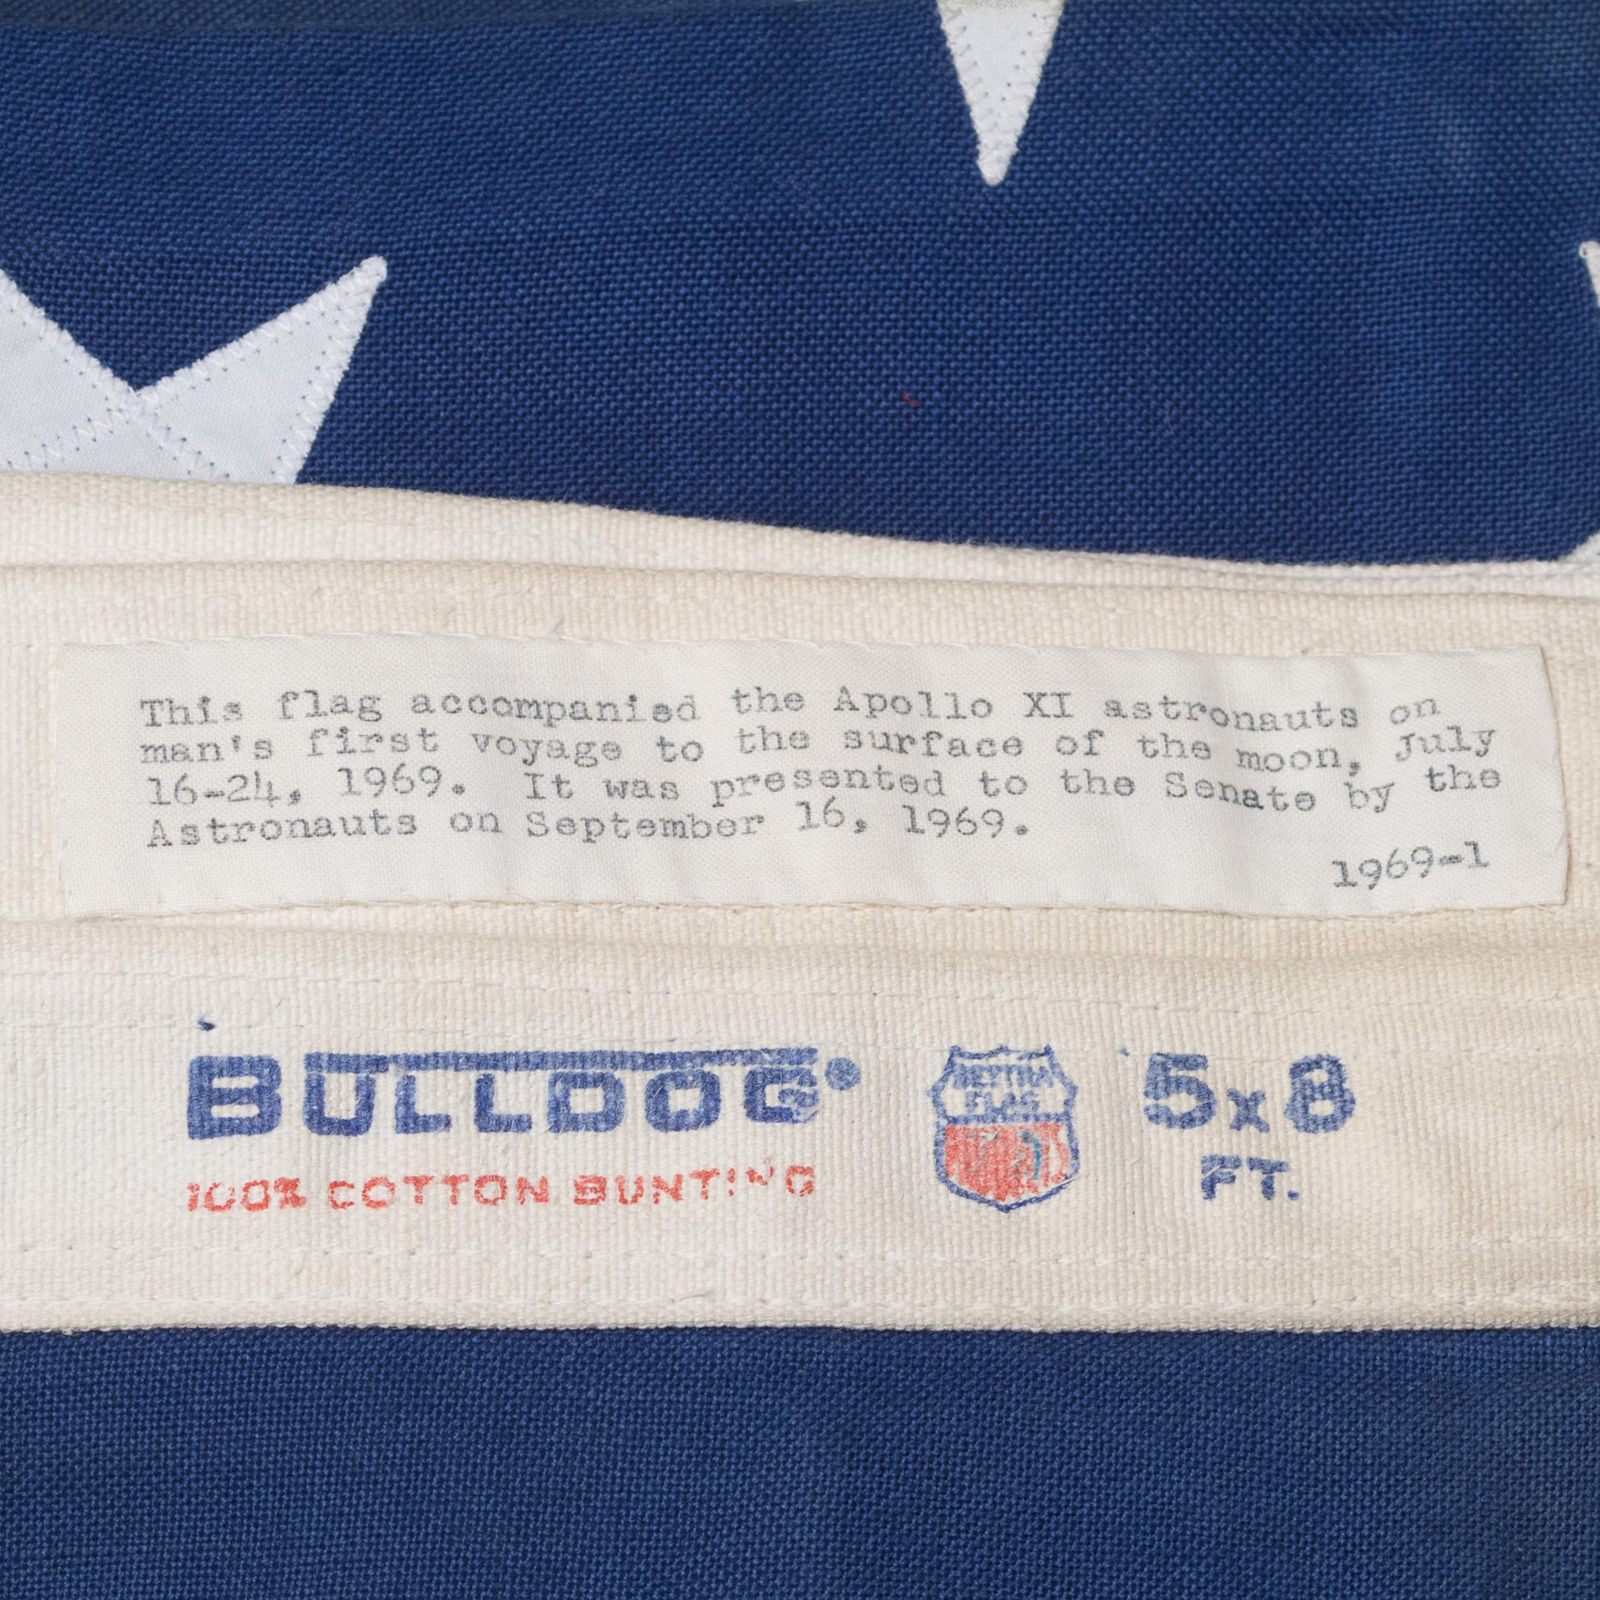 This flag accompanied the Apollo XI astronauts on
man's first voyage to the surface of the moon, July
16-24, 1969. It was presented to the Senate by the
Astronauts on September 16, 1969.
1969-1
BULLDOG
100% COTTON BUNTING
FLAG
5x8
FT.